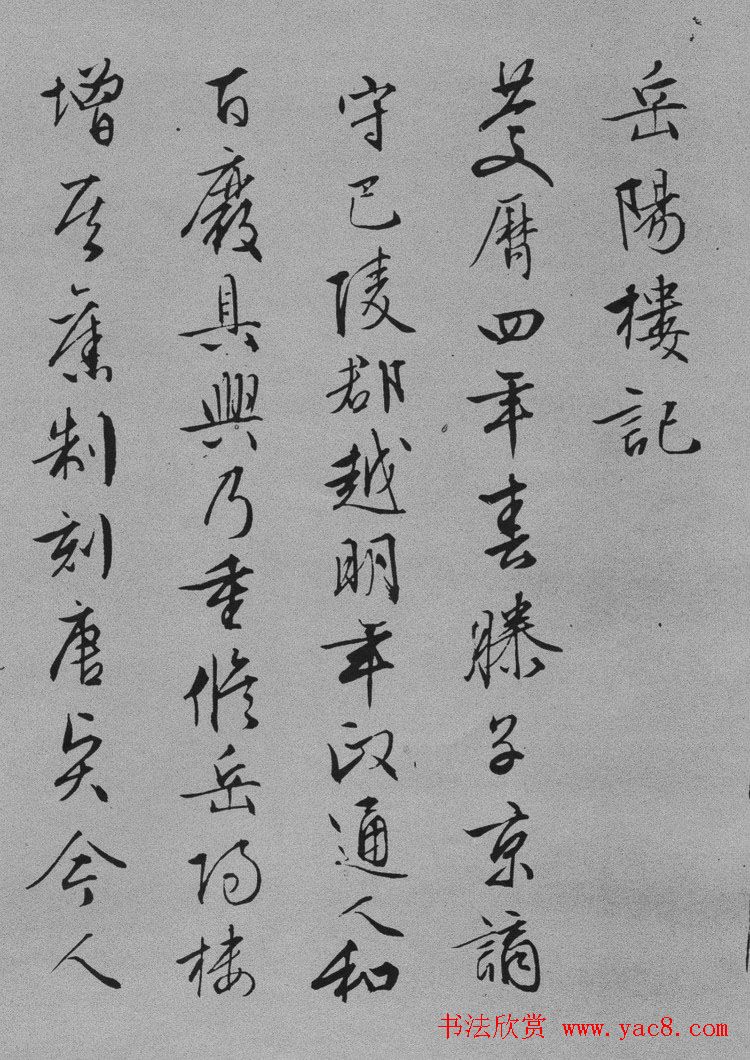 岳陽樓記
慶曆四年春滕子京謫
守巴陵郡越明年政通人和
百廢具興乃重脩岳陽樓
增其舊制刻唐賢今人
书法欣赏 www.yac8.com